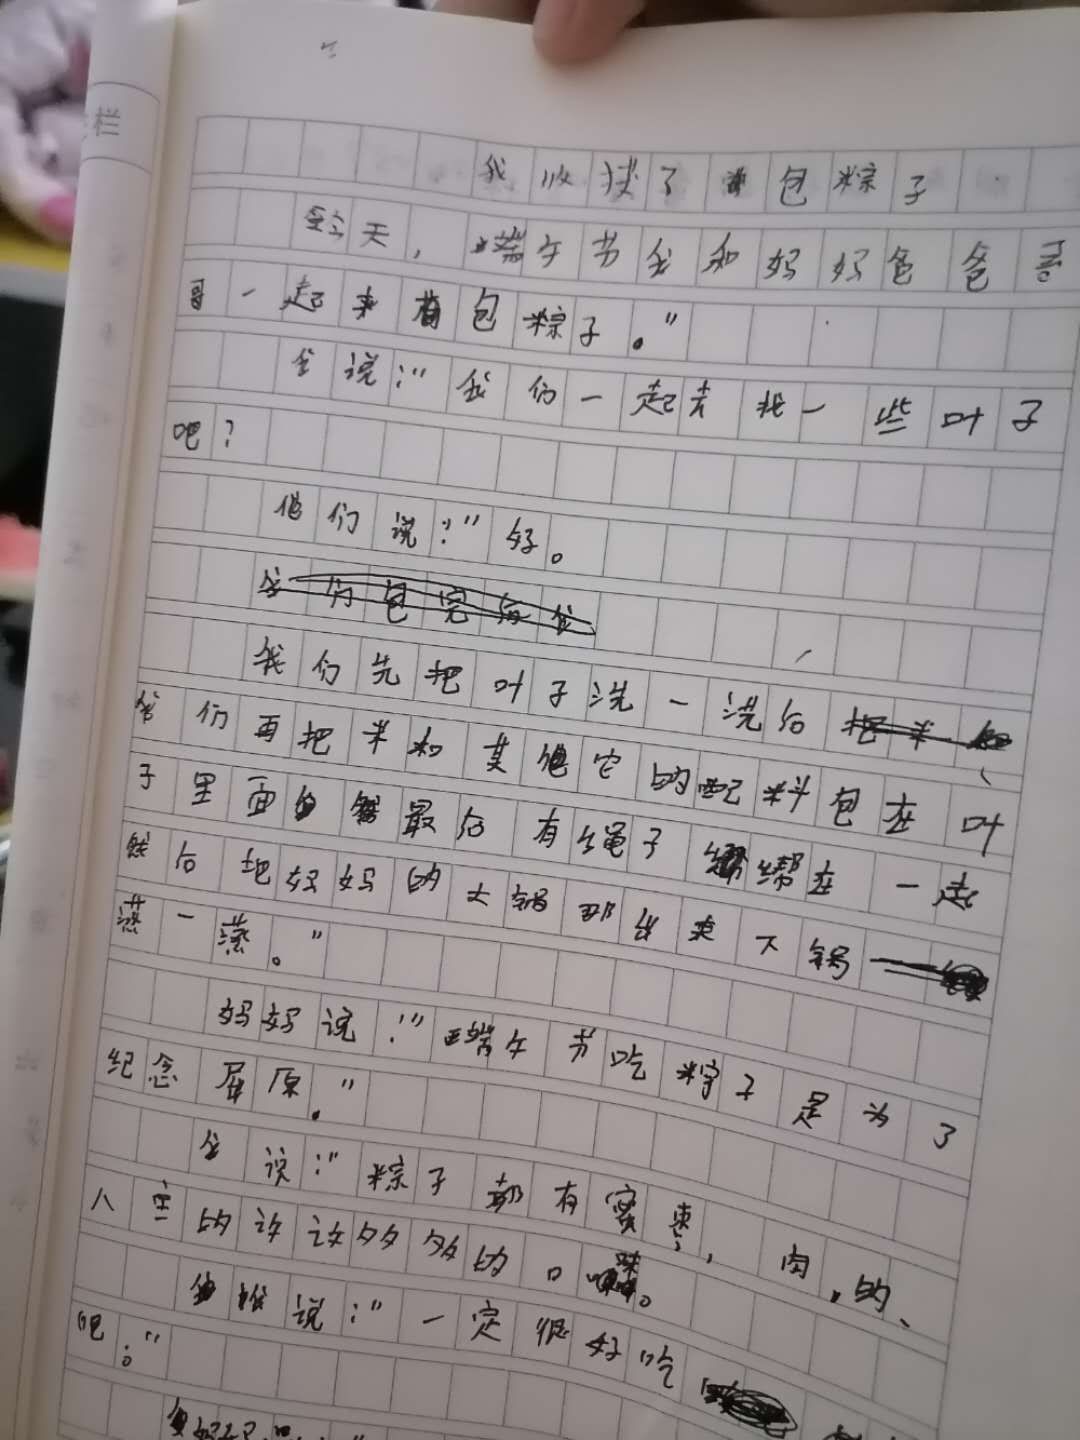 栏
我收获了包粽子
今天，端午节我和妈妈爸爸哥
哥一起来包粽子。”
我说：“我们一起去找一些叶子
吧？
他们说：“好。
我们包完后我
我们先把叶子洗一洗后把米
我们再把米和其他它的配料包在叶
子里面最后有绳子绑在一起
然后把妈妈的大锅那出来下锅
蒸一蒸。”
妈妈说：“端午节吃粽子是为了
纪念屈原。”
我说：“粽子都有蜜枣，肉的、
八宝的许许多多的口味。
说：“一定很好吃
吧。”